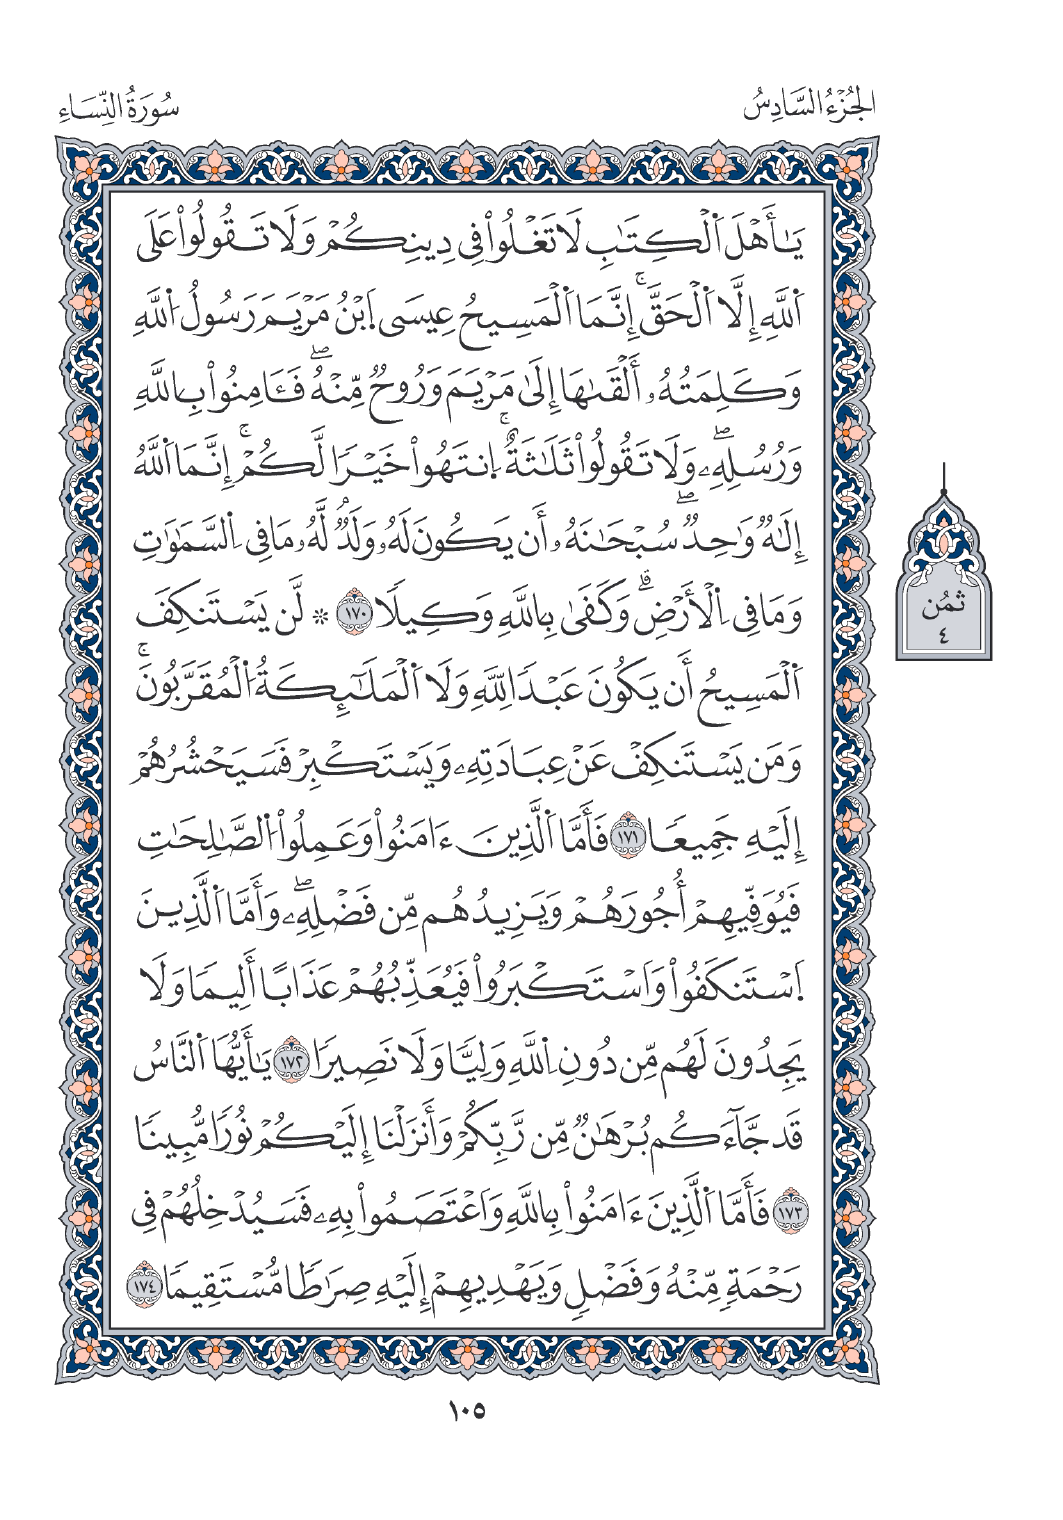 الجُزْءُ السَّادِسُ
سُورَةُ النِّسَاءِ
يَٰٓأَهْلَ اَ۬لْكِتَٰبِ لَا تَغْلُواْ فِے دِينِكُمْ وَلَا تَقُولُواْ عَلَي
اَ۬للَّهِ إِلَّا اَ۬لْحَقَّۚ إِنَّمَا اَ۬لْمَسِيحُ عِيسَي اَ۪بْنُ مَرْيَمَ رَسُولُ اُ۬للَّهِ
وَكَلِمَتُهُۥ أَلْقَىٰهَا إِلَىٰ مَرْيَمَ وَرُوحٌ مِّنْهُۖ فَـَٔامِنُواْ بِاللَّهِ
وَرُسُلِهِۦۖ وَلَا تَقُولُواْ ثَلَٰثَةٌۚ اِ۪نتَهُواْ خَيْرٗا لَّكُمْۚ إِنَّمَا اَ۬للَّهُ
إِلَٰهٌ وَٰحِدٌۖ سُبْحَٰنَهُۥ أَن يَكُونَ لَهُۥ وَلَدٌۘ لَّهُۥ مَا فِي اِ۬لسَّمَٰوَٰتِ
وَمَا فِي اِ۬لْأَرْضِۗ وَكَفَىٰ بِاللَّهِ وَكِيلٗا ١٧٠ ۞ لَّن يَسْتَنكِفَ
اَ۬لْمَسِيحُ أَن يَكُونَ عَبْدٗا لِّلَّهِ وَلَا اَ۬لْمَلَٰٓئِكَةُ اُ۬لْمُقَرَّبُونَۚ
وَمَن يَسْتَنكِفْ عَنْ عِبَادَتِهِۦ وَيَسْتَكْبِرْ فَسَيَحْشُرُهُمْ
إِلَيْهِ جَمِيعٗا ١٧١ فَأَمَّا اَ۬لَّذِينَ ءَامَنُواْ وَعَمِلُواْ اُ۬لصَّٰلِحَٰتِ
فَيُوَفِّيهِمْ أُجُورَهُمْ وَيَزِيدُهُم مِّن فَضْلِهِۦۖ وَأَمَّا اَ۬لَّذِينَ
اَ۪سْتَنكَفُواْ وَاَسْتَكْبَرُواْ فَيُعَذِّبُهُمْ عَذَابًا أَلِيمٗا وَلَا
يَجِدُونَ لَهُم مِّن دُونِ اِ۬للَّهِ وَلِيّٗا وَلَا نَصِيرٗا ١٧٢ يَٰٓأَيُّهَا اَ۬لنَّاسُ
قَد جَّآءَكُم بُرْهَٰنٌ مِّن رَّبِّكُمْ وَأَنزَلْنَا إِلَيْكُمْ نُورٗا مُّبِينٗا
١٧٣ فَأَمَّا اَ۬لَّذِينَ ءَامَنُواْ بِاللَّهِ وَاَعْتَصَمُواْ بِهِۦ فَسَيُدْخِلُهُمْ فِے
رَحْمَةٖ مِّنْهُ وَفَضْلٖ وَيَهْدِيهِمْ إِلَيْهِ صِرَٰطٗا مُّسْتَقِيمٗا ١٧٤
ثمُن
٤
١٠٥